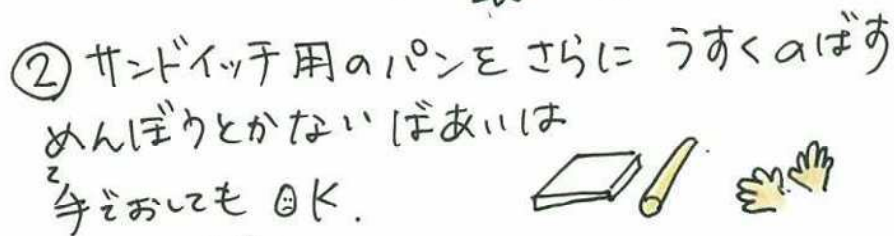 ② サンドイッチ用のパンを さらに うすくのばす
めんぼうとかないばあいは
手でおしても OK.
て